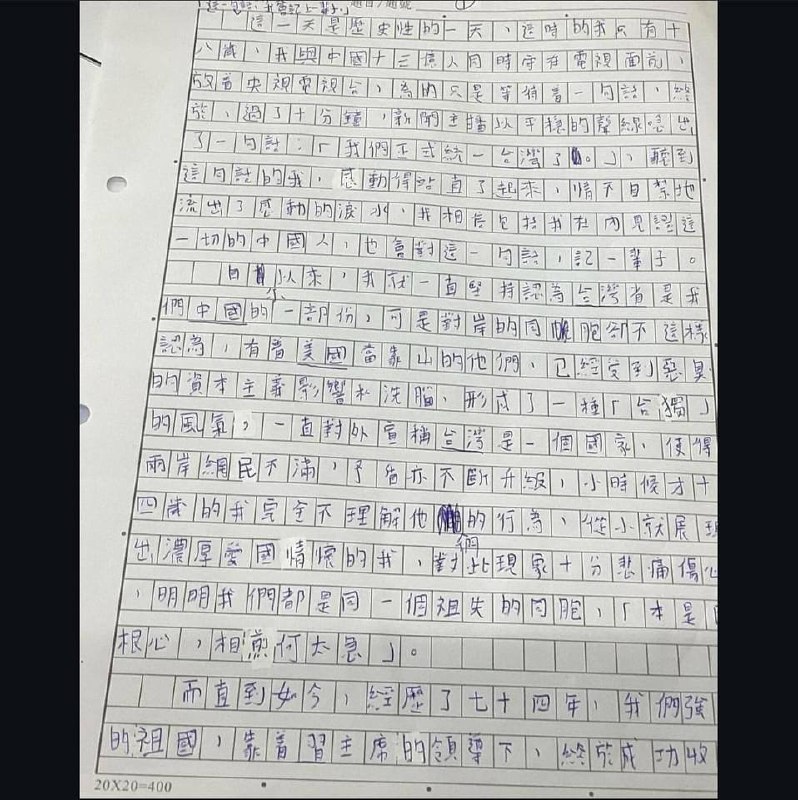 這一句話，我會記上一輩子
題目/題號 ①
這一天是歷史性的一天，這時的我只有十
八歲，我與中國十三億人同時守在電視面前，
放着央視電視台，為的只是等待着一句話，終
於，過了十分鐘，新聞主播以平穩的聲線唸出
了一句話：「我們正式統一台灣了。」，聽到
這句話的我，感動得站直了起來，情不自禁地
流出了感動的淚水，我相信包括我在內見證這
一切的中國人，也會對這一句話，記一輩子。
自以來，我就一直堅持認為台灣省是我
們中國的一部份，可是對岸的同胞卻不這樣
認為，有着美國當靠山的他們，已經受到惡臭
的資本主義影響和洗腦，形成了一種「台獨」
的風氣，一直對外宣稱台灣是一個國家，使得
兩岸網民不滿，矛盾亦不斷升級，小時候才十
四歲的我完全不理解他們的行為，從小就展現
出濃厚愛國情懷的我，對此現象十分悲痛傷心
，明明我們都是同一個祖先的同胞，「本是同
根心，相煎何太急」。
而直到如今，經歷了七十四年，我們強
的祖國，靠着習主席的領導下，終於成功收
20X20=400